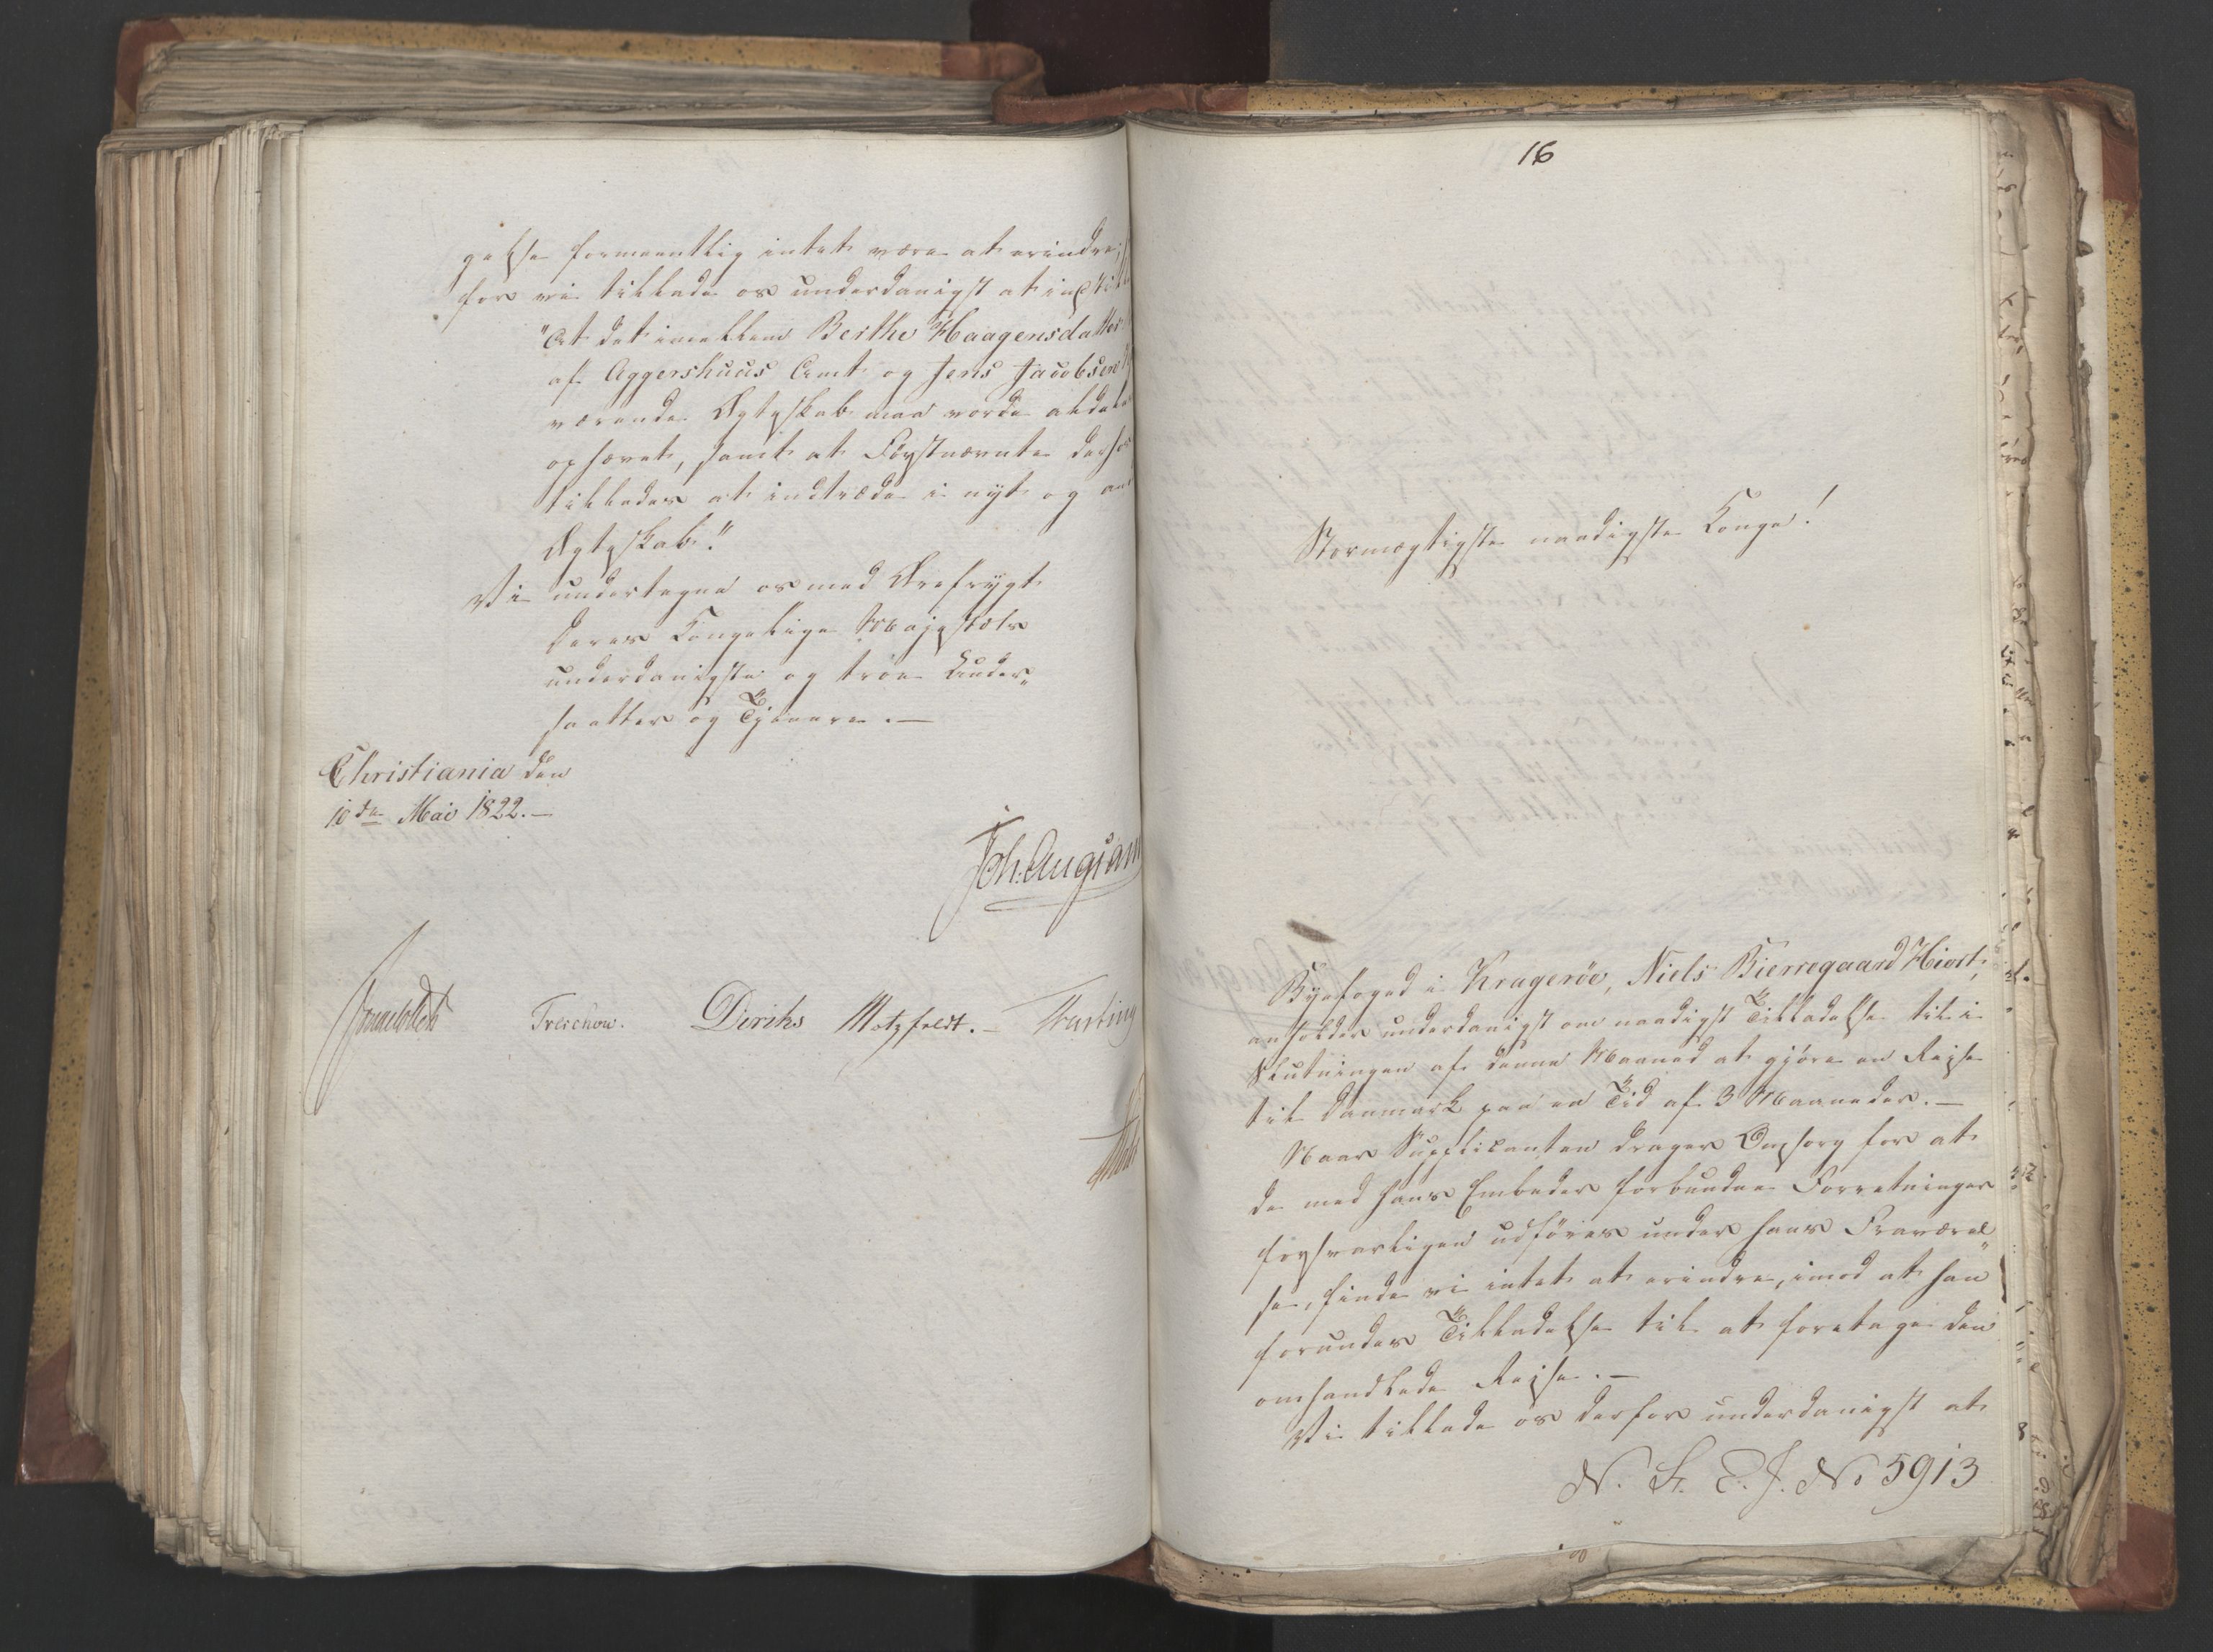 gelse formeentlig intet være at erindre;
for vi tillade os underdanigst at indstille
"At det imellem Berthe Haagensdatter
af Aggershuus Amt og Jens Jacobsen
værende Ægteskab maa vorde aldeles
ophævet, samt at Førstnævnte derhos
tillades at indtræde i nyt og andet
Ægteskab."
Vi undertegne os med Ærefrygt
Deres Kongelige Majestæts
underdanigste og troe Under„
saatter og Tjenere.—
Christiania den
10de Mai 1822.—
Joh: Aug: San
Sommerhielm Treschow. Diriks Motzfeldt.— Krefting
16
Stormægtigste naadigste Konge!
Byefoged i Kragerøe, Niels Bierregaard Hiort,
anholder underdanigst om naadigst Tilladelse til i
Slutningen af denne Maaned at gjøre en Rejse
til Danmark paa en Tid af 3 Maaneder.—
Naar Supplicanten drager Omsorg for at
de med hans Embeder forbundne Forretninger
forsvarligen udføres under hans Fraværel„
se, finde vi intet at erindre, imod at han
forundes Tilladelse til at foretage den
omhandlede Rejse.—
Vi tillade os derfor underdanigst at
N. St. E. J. No 5913